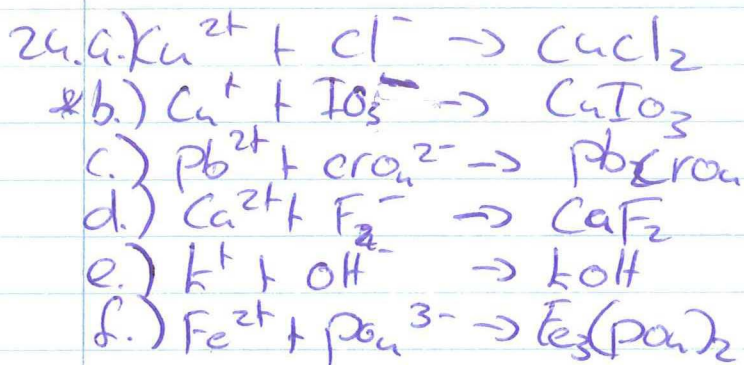 24. a.) Cu²⁺ + Cl⁻ → CuCl₂
*b.) Cu⁺ + IO₃⁻ → CuIO₃
c.) Pb²⁺ + CrO₄²⁻ → PbCrO₄
d.) Ca²⁺ + F⁻ → CaF₂
e.) K⁺ + OH⁻ → KOH
f.) Fe²⁺ + PO₄³⁻ → Fe₃(PO₄)₂